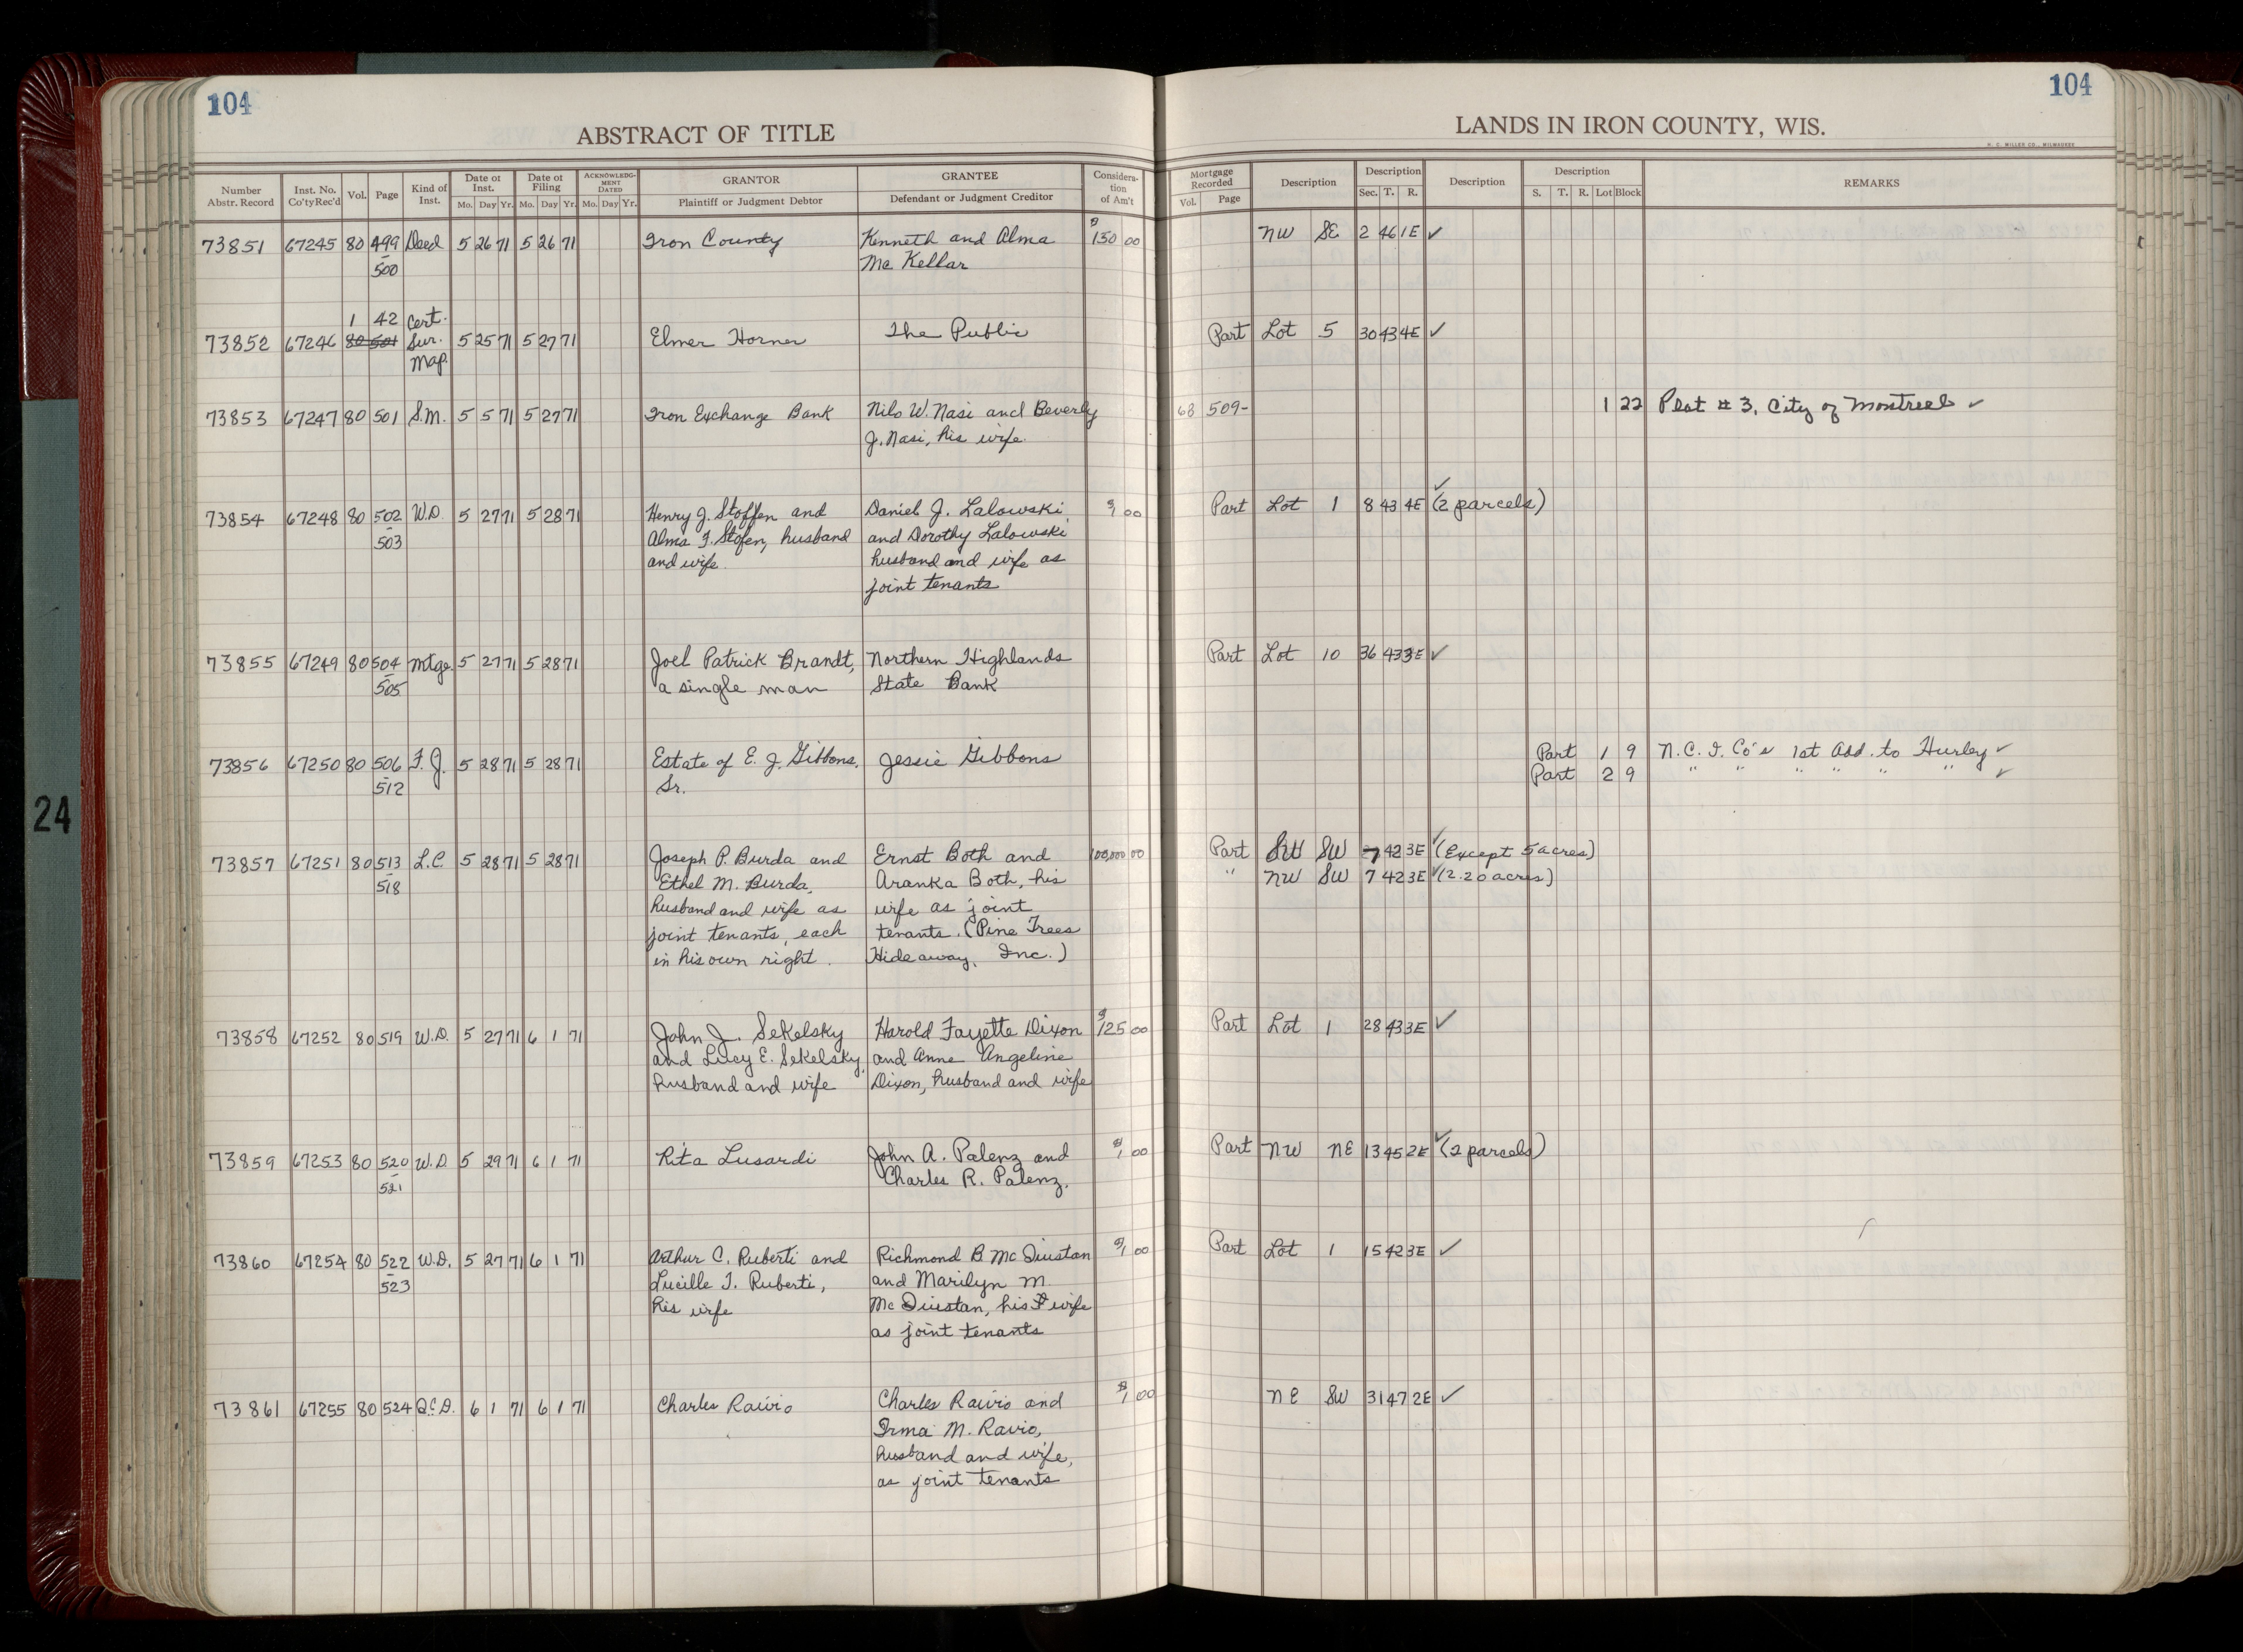 104
104
ABSTRACT OF TITLE
LANDS IN IRON COUNTY, WIS.
H. C. MILLER CO., MILWAUKEE
Number Abstr. Record | Inst. No. Co'ty Rec'd | Vol. | Page | Kind of Inst. | Date of Inst. Mo. Day Yr. | Date of Filing Mo. Day Yr. | ACKNOWLEDG-MENT DATED Mo. Day Yr. | GRANTOR Plaintiff or Judgment Debtor | GRANTEE Defendant or Judgment Creditor | Considera-tion of Am't | Mortgage Recorded Vol. Page | Description | Description Sec. T. R. | Description | Description S. T. R. Lot Block | REMARKS
73851 67245 80 499 Deed 5 26 71 5 26 71 Iron County Kenneth and Alma $150 00 NW SE 2 46 1E ✓
-500 Mc Kellar
1 42 Cert.
73852 67246 80 501 Sur. 5 25 71 5 27 71 Elmer Horner The Public Part Lot 5 30 43 4E ✓
Map.
73853 67247 80 501 S.M. 5 5 71 5 27 71 Iron Exchange Bank Nilo W. Nasi and Beverly 68 509- 1 22 Plat #3, City of Montreal ✓
J. Nasi, his wife.
73854 67248 80 502 W.D. 5 27 71 5 28 71 Henry J. Stoffen and Daniel J. Lalowski $1 00 Part Lot 1 8 43 4E ✓ (2 parcels)
-503 Alma F. Stofen, husband and Dorothy Lalowski
and wife. husband and wife as
joint tenants
73855 67249 80 504 Mtge. 5 27 71 5 28 71 Joel Patrick Brandt, Northern Highlands Part Lot 10 36 43 3E ✓
-505 a single man State Bank
73856 67250 80 506 F.J. 5 28 71 5 28 71 Estate of E. J. Gibbons, Jessie Gibbons Part 1 9 N.C.I. Co's 1st Add. to Hurley ✓
-512 Sr. Part 2 9 " " " " " " ✓
73857 67251 80 513 L.C. 5 28 71 5 28 71 Joseph P. Burda and Ernst Both and 100,000 00 Part SW SW 7 42 3E ✓ (Except 5 acres)
-518 Ethel M. Burda, Aranka Both, his " NW SW 7 42 3E ✓ (2.20 acres)
husband and wife as wife as joint
joint tenants, each tenants. (Pine Trees
in his own right. Hideaway, Inc.)
73858 67252 80 519 W.D. 5 27 71 6 1 71 John J. Sekelsky Harold Fayette Dixon $125 00 Part Lot 1 28 43 3E ✓
and Lucy E. Sekelsky, and Anne Angeline
husband and wife Dixon, husband and wife
73859 67253 80 520 W.D. 5 29 71 6 1 71 Rita Lusardi John A. Palenz and $1 00 Part NW NE 13 45 2E ✓ (2 parcels)
-521 Charles R. Palenz.
73860 67254 80 522 W.D. 5 27 71 6 1 71 Arthur C. Ruberti and Richmond B. $1 00 Part Lot 1 15 42 3E ✓
-523 Lucille T. Ruberti, and Marilyn M.
his wife his wife
as joint tenants
73861 67255 80 524 Q.C.D. 6 1 71 6 1 71 Charles Ravio Charles Ravio and $1 00 NE SW 31 47 2E ✓
Irma M. Ravio,
husband and wife,
as joint tenants
24